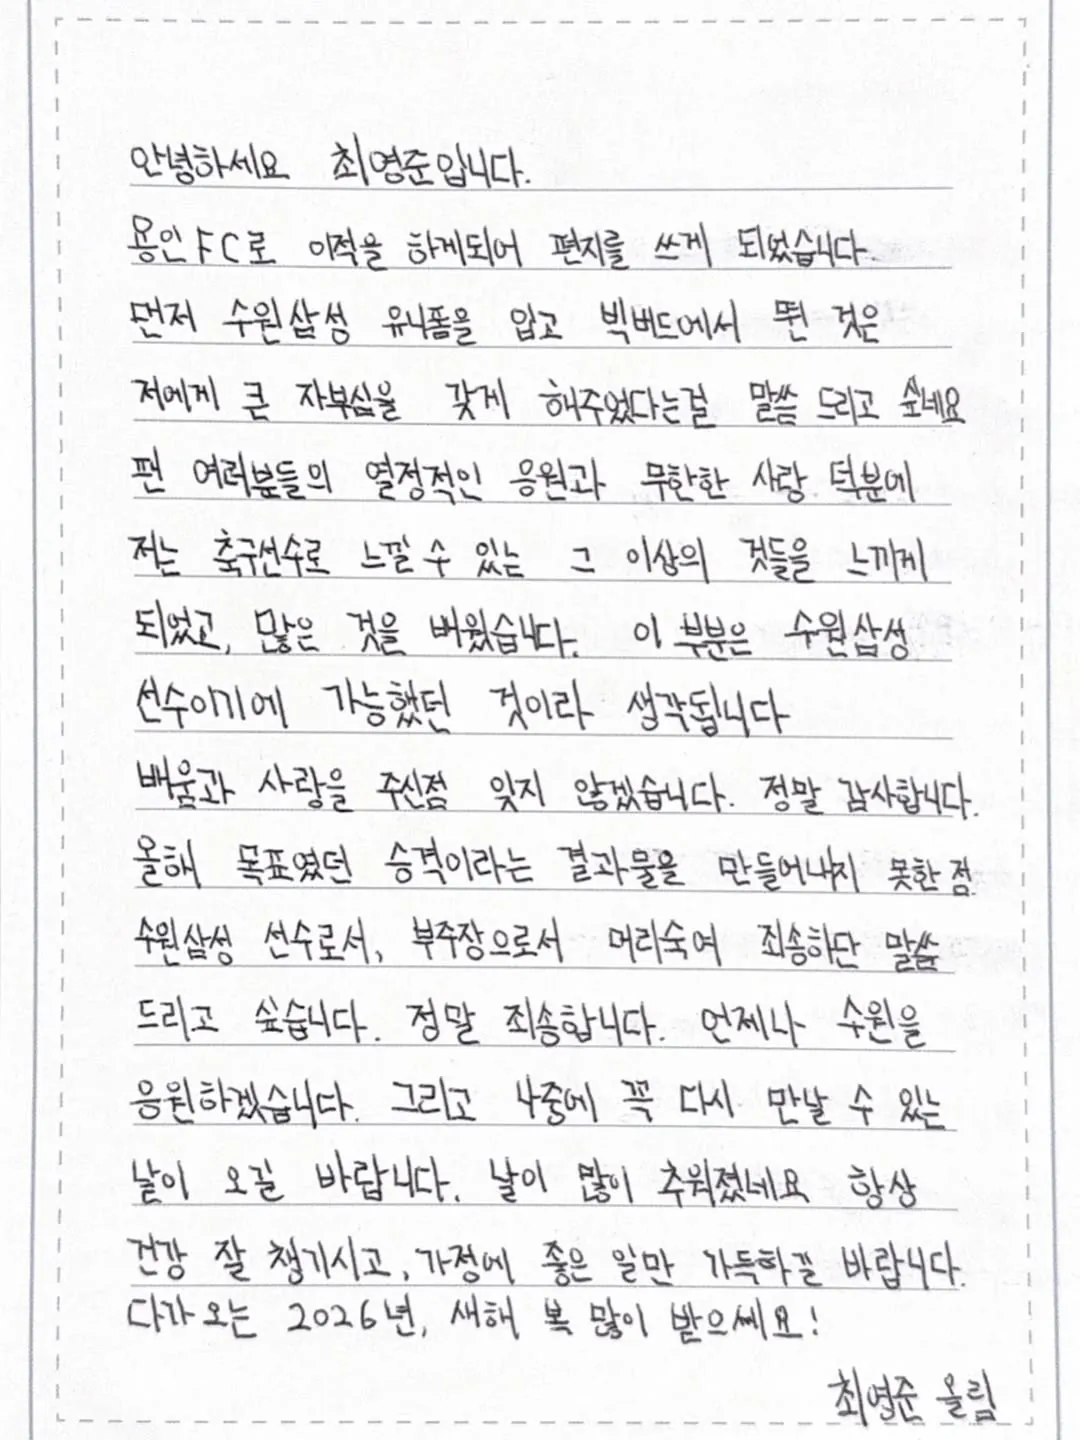 안녕하세요 최영준입니다.
용인FC로 이적을 하게되어 편지를 쓰게 되었습니다.
먼저 수원삼성 유니폼을 입고 빅버드에서 뛴 것은
저에게 큰 자부심을 갖게 해주었다는걸 말씀 드리고 싶네요
팬 여러분들의 열정적인 응원과 무한한 사랑 덕분에
저는 축구선수로 느낄 수 있는 그 이상의 것들을 느끼게
되었고, 많은 것을 배웠습니다. 이 부분은 수원삼성
선수이기에 가능했던 것이라 생각됩니다
배움과 사랑을 주신점 잊지 않겠습니다. 정말 감사합니다.
올해 목표였던 승격이라는 결과물을 만들어내지 못한 점
수원삼성 선수로서, 부주장으로서 머리숙여 죄송하단 말씀
드리고 싶습니다. 정말 죄송합니다. 언제나 수원을
응원하겠습니다. 그리고 나중에 꼭 다시 만날 수 있는
날이 오길 바랍니다. 날이 많이 추워졌네요 항상
건강 잘 챙기시고, 가정에 좋은 일만 가득하길 바랍니다.
다가오는 2026년, 새해 복 많이 받으세요!
최영준 올림